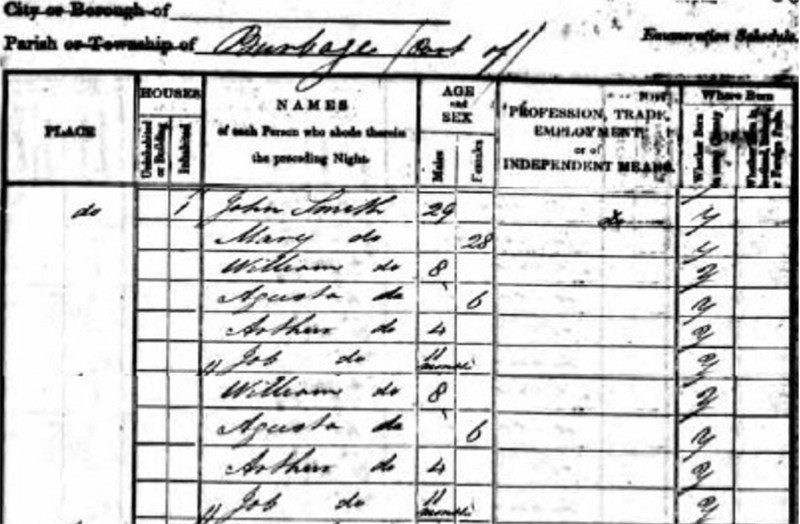 City or Borough of
Parish or Township of Burbage (Part of)
Enumeration Schedule.
PLACE
HOUSES
Uninhabited or Building
Inhabited
NAMES
of each Person who abode therein
the preceding Night.
AGE
and
SEX
Males
Females
PROFESSION, TRADE,
EMPLOYMENT,
or of
INDEPENDENT MEANS.
Where Born
Whether Born in same County
do 1 John Smith 29 y
Mary do 28 y
William do 8 y
Agusta do 6 y
Arthur do 4 y
Job do 11 months y
William do 8 y
Agusta do 6 y
Arthur do 4 y
Job do 11 months y